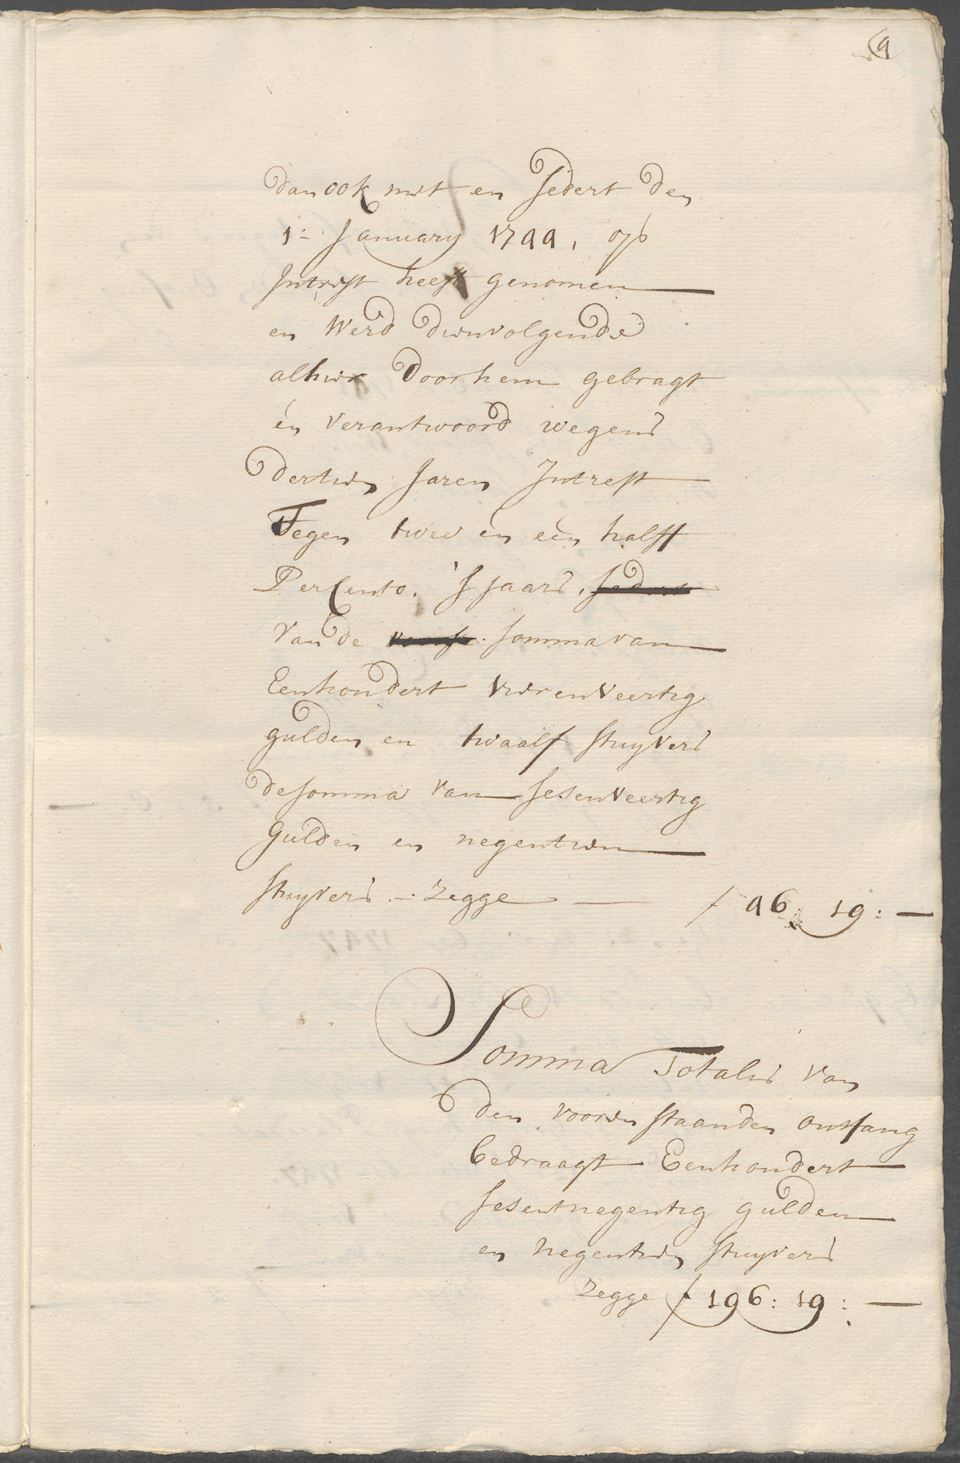 4
dan ook met en sedert den
1: January 1744, op
Intrest heeft genomen
en werd dienvolgende
alhier door hem gebragt
en verantwoord wegens
dertien Jaren Intrest
Tegen twee en een halff
Percento. 's jaars, sedert
van de somma van
Eenhondert vierenveertig
gulden en twaalf stuyvers
de somma van sesenveertig
Gulden en negentien
stuyvers. - Zegge f 46: 19: -
Somma Totalis van
den voorenstaanden ontfang
bedraagt Eenhondert
sesentnegentig gulden
en negentien stuyvers
Zegge f 196: 19: -